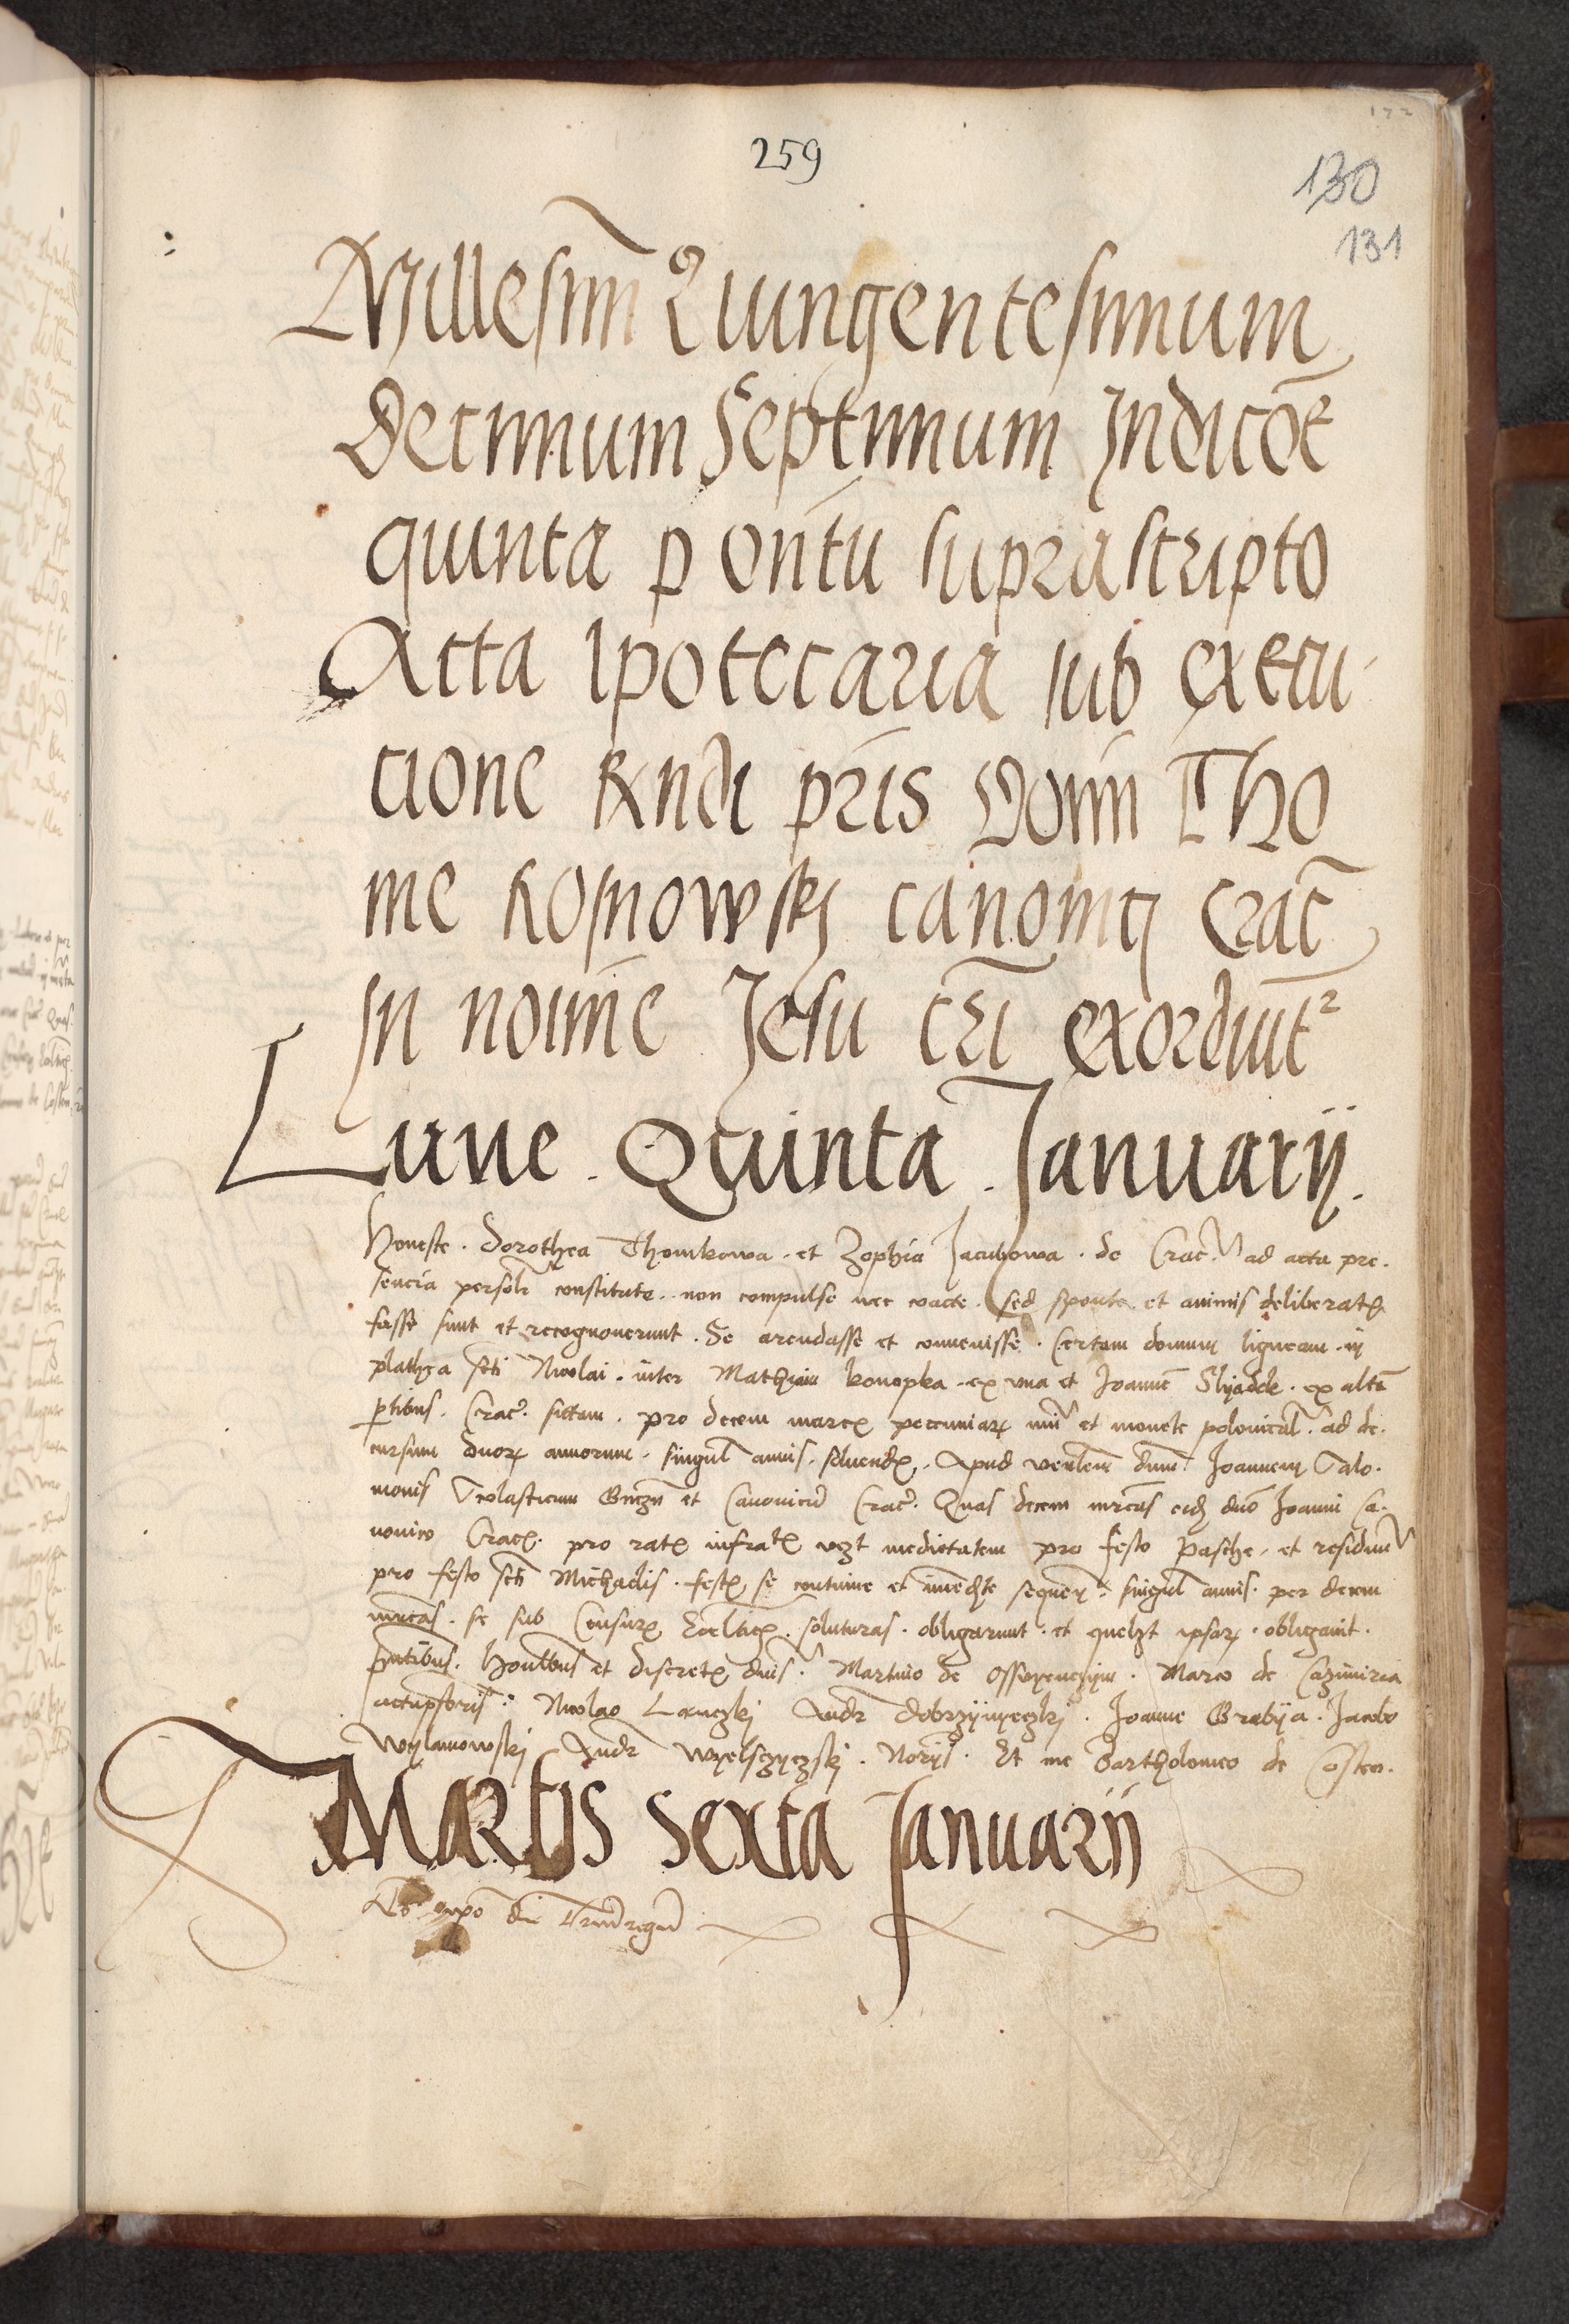 259
130
131
Millesim̄ Quingentesimum
Decimum Septimum Indicōe
quinta p ontū suprascripto
Acta Ipotecaria sub execu-
cione Rndi pr̄is Domi Tho
me Rosnowskj canonicj Crac̄
In noīmē Jesu cr̄i exordiūt²
Lune . Quinta . Januarij .
Honeste . Dorothea Thomkowa . et Zophia Jacubowa . de Crac. ad acta pre.
sencia persolr constitute . non compulse nec coacte . sed sponte . et animis deliberatꝭ
fasse sunt et recognouerunt . Se arendasse et conuenisse . Certam domum ligneam . in
plathea scti Nicolai . inter Mathiam konopka . ex vna et Joanne Slyadek . ex altā
ptibus . Crac. sittam . pro decem marcꝭ pecuniarꝝ et monete polonical. ad de.
cursum duorꝝ annorum . singul annis . soluendꝭ . Apud venlem dnm. Joannem Salo.
monis Scolasticum Gnezn et Canonicū Crac. Quas decem mrcas eidꝫ dno Joanni Ca.
nonico Cracꝭ. pro ratꝭ infratꝭ vꝫt medietatem pro festo Pasche . et residuū
pro festo scti Michaelis . festꝭ se continue et immedte sequen. singul annis . per decem
mrcas . se sub Censurꝭ Ecclticꝭ . soluturas . obligarunt . et quelꝫt ipsarꝝ . obligauit .
pntibus . Honllbus et discretꝭ dnis. Martino de . Marco de Cazimiria
Nicolao Lanczkj Andr Dobrzijnyeczkj . Joanne Grabija . Jacobo
Wylamowskj Andr . Norijs . Et me Bartholomeo de Costen.
Martis Sexta Januarij